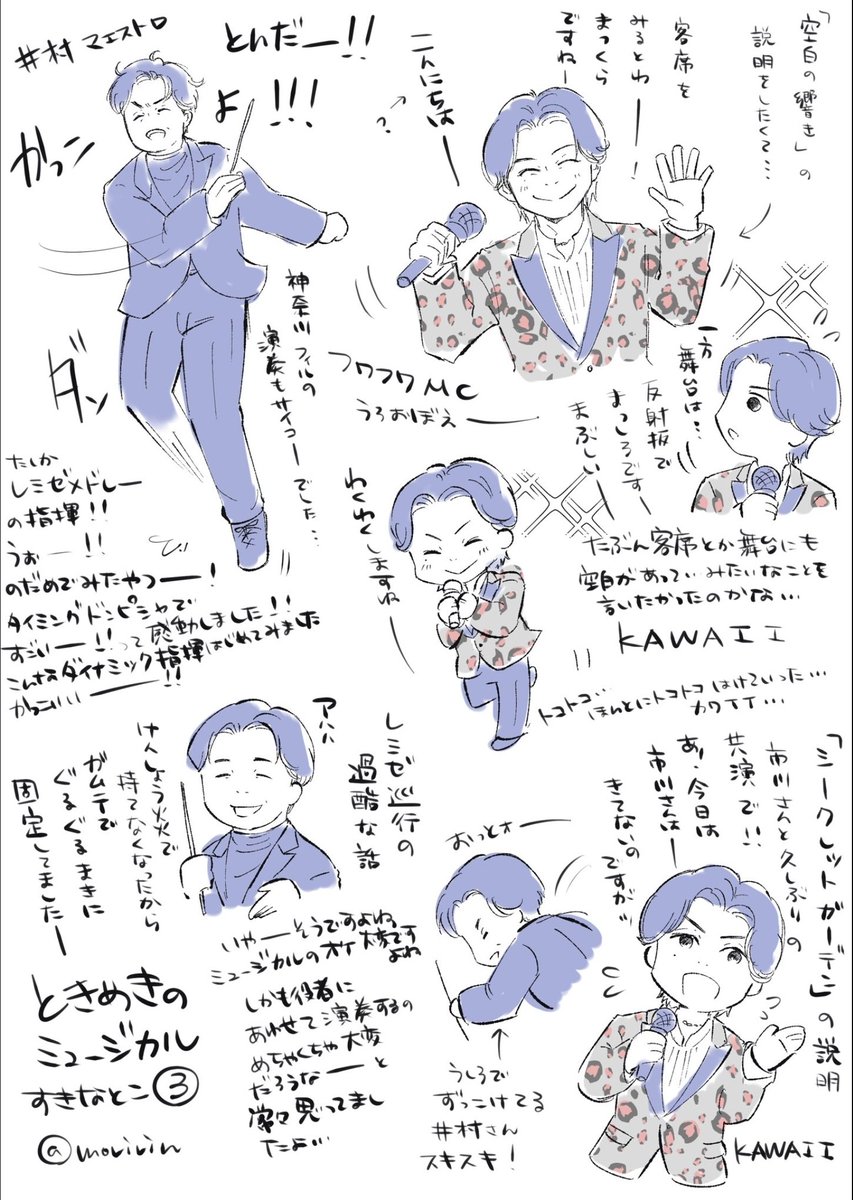 井村マエストロ
とんだー!!
よ!!!
かっコン
ダン
神奈川フィルの
演奏もサイコーでした…
たしか
レミゼメドレー
の指揮!!
うおー!!
のだめでみたやつー!
タイミングドンピシャで
すごいー!!って感動しました!!
こんなダイナミック指揮はじめてみました
かっこいいー!!
「空白の響き」の
説明をしたくて…
客席を
みるとわー!
まっくら
ですねー
こんにちはー
?
フワフワMC
うろおぼえ
一方
舞台は…
反射板で
まっしろです
まぶしいー
たぶん客席とか舞台にも
空白があってぃみたいなことを
言いたかったのかな…
KAWAII
わくわくしますね
トコトコ…
ほんとにトコトコはけていった…
カワイイ…
アハハ
レミゼ巡行の
過酷な話
けんしょう炎で
持てなくなったから
ガムテで
ぐるぐるまきに
固定してましたー
いやーそうですよね
ミュージカルのオケ大変です
よね
しかも役者に
あわせて演奏するの
めちゃくちゃ大変
だろうなーと
常々思ってまし
たよ…
おっとォー
うしろで
ずっこけてる
井村さん
スキスキ!
「シークレットガーデン」の説明
市川さんと久しぶりの
共演で!!
あ、今日は
市川さんは
きてないの
ですが
KAWAII
ときめきの
ミュージカル
すきなとこ③
@moririn